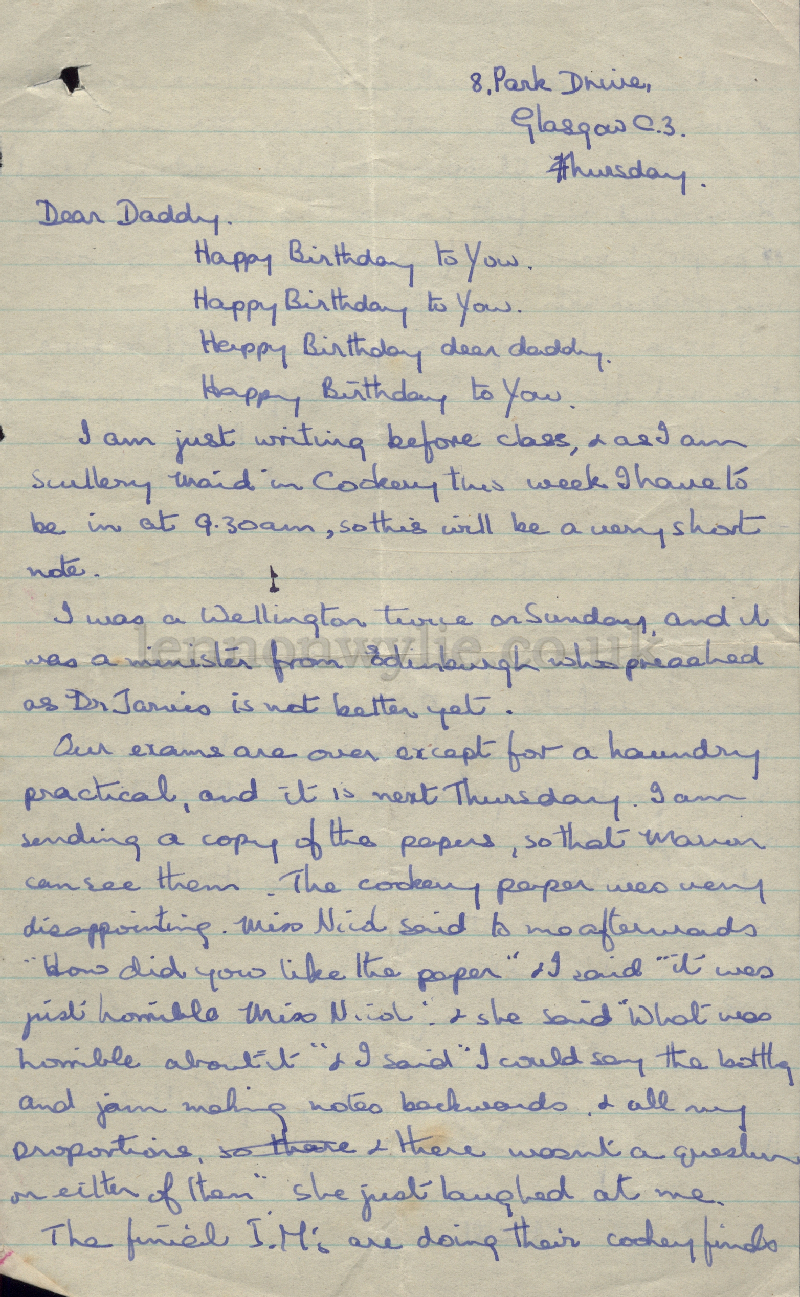 8, Park Drive,
Glasgow C.3.
Thursday.
Dear Daddy.
Happy Birthday to You.
Happy Birthday to You.
Happy Birthday dear daddy.
Happy Birthday to You.
I am just writing before class, & as I am
Scullery Maid in Cookery this week I have to
be in at 9.30am, so this will be a very short
note.
I was a Wellington twice on Sunday, and it
lennonwylie.co.uk
was a minister from Edinburgh who preached
as Dr Jarvis is not better yet.
Our exams are over except for a Laundry
practical, and it is next Thursday. I am
sending a copy of the papers, so that
can see them. The cookery paper was very
disappointing. Miss Nicol said to me afterwards
"How did you like the paper" & I said "it was
just horrible Miss Nicol". & she said "What was
horrible about it" & I said "I could say the bottlg
and jam making notes backwards, & all my
proportions, so there & there wasn't a question
on either of them" she just laughed at me.
The I.M's are doing their cookery finals